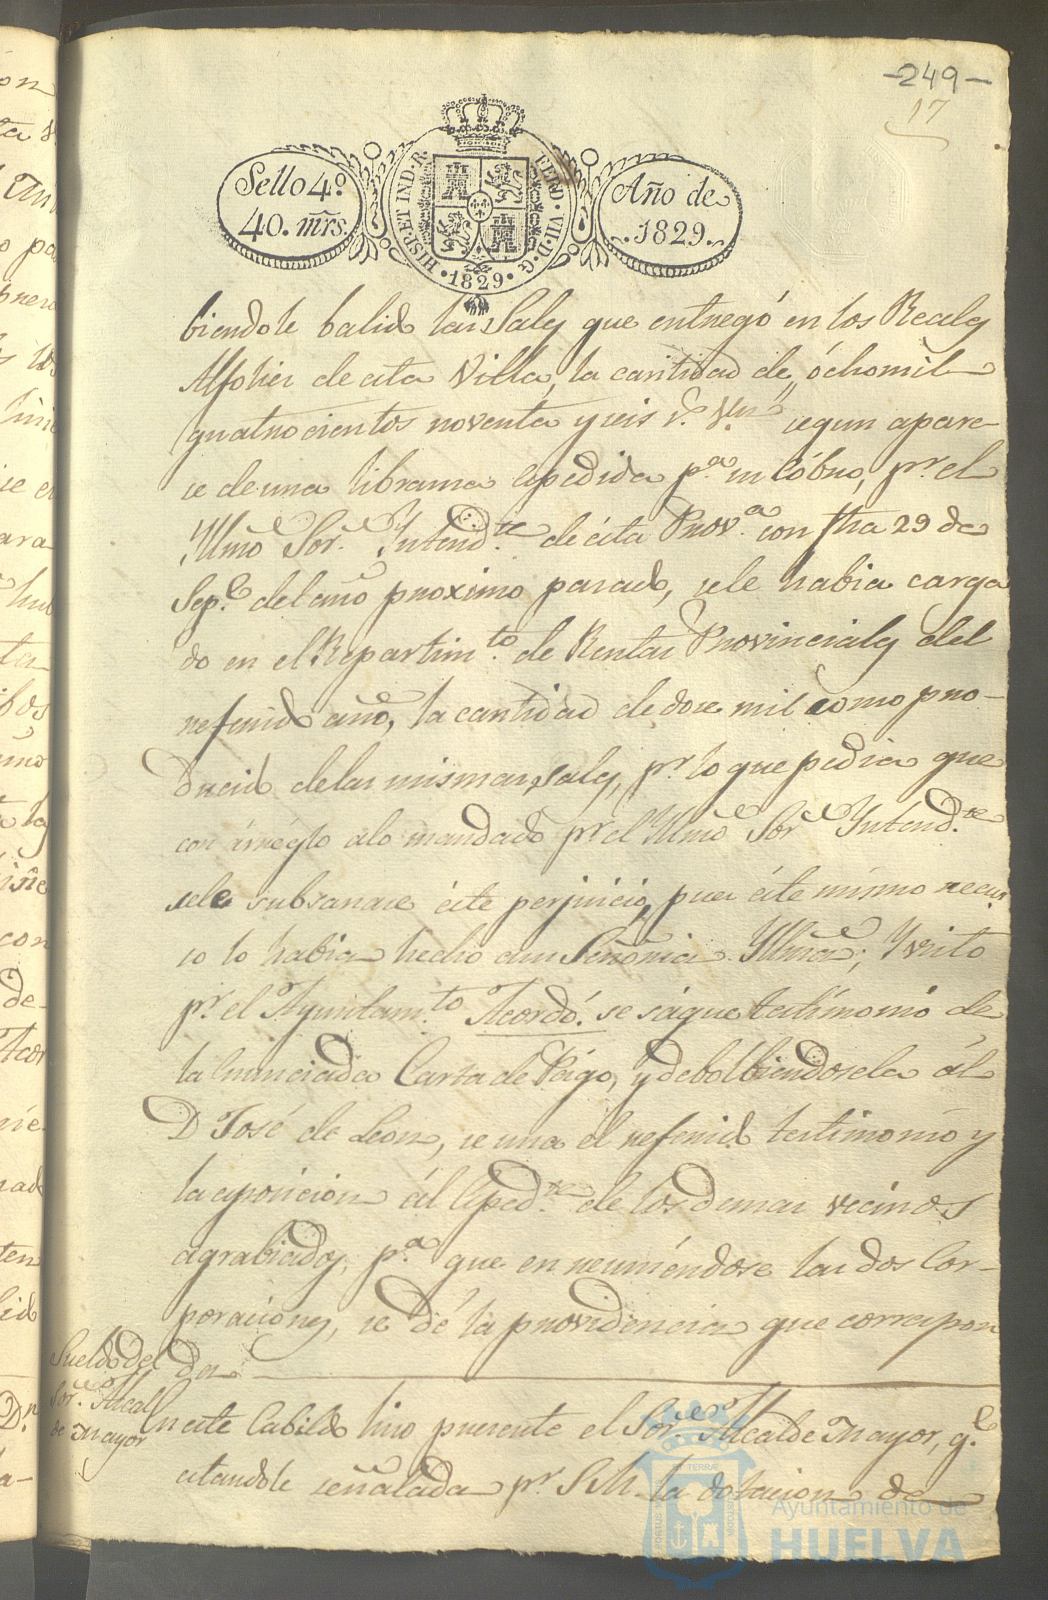 -249-
17
Sello 4º
40. mrs.
HISP. ET IND. R.
FERD. VII. D. G.
1829
Año de
1829.
biendole balido las Sales que entregó en los Reales
Alfolies de esta Villa, la cantidad de,, óchomil
quatrocientos noventa y seis r.s V.n segun apare-
se de una librama espedida p.a su cóbro, p.r el
Yllmô Sor. Yntend.te de ésta Prov.a con fha 29 de
Sep.e del año proximo pasado, sele habia carga
do en el Repartim.to de Rentas Provinciales del
referido año, la cantidad de dose mil como pro-
ducido delas mismas sales, p.r lo que pedia que
con árreglo alo mandado p.r el Yllmô Sor Yntend.te
sele subsanase éste perjuicio, pues éste mismo recur
so lo habia hecho á su Señoria Yllmâ; Y visto
p.r el Ayuntam.to Acordó: se sáque testimonio de
la enunciada Carta de Págo, y debolbiendosela ál
D José de Leon, se una el referido testimonio y
la esposicion ál Esped.te de los demas vecinos
agrabiados, p.a que en reuniéndose las dos Cor-
poraciones, se dé la providencia que correspon
da
Sueldo del
Sor. Alcal
de Mayor
En este Cabildo hiso presente el Sor. Alcalde Mayor, q.e
estandole señalada p.r S.M. la dotacion de
Ayuntamiento de
HUELVA